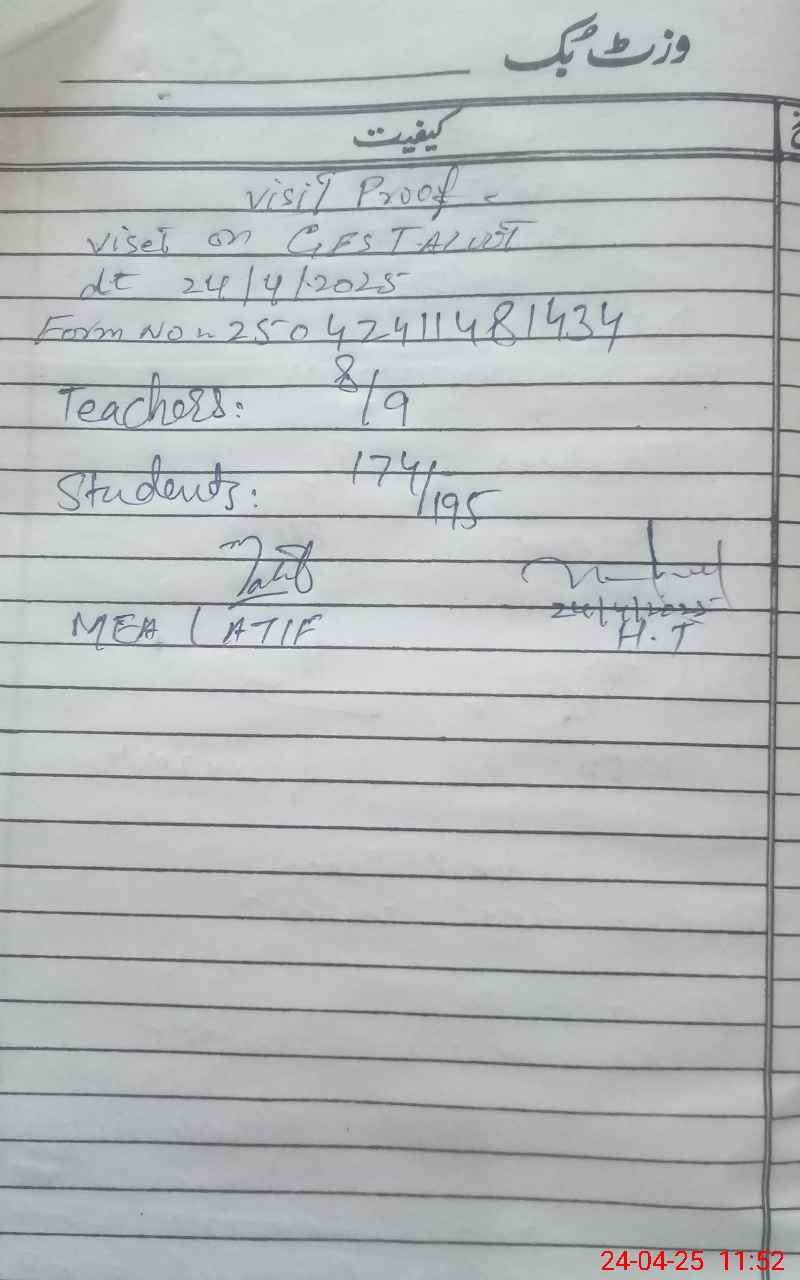 وزٹ بک
کیفیت
visit Proof -
viset on GES TALWT
dt 24/4/2025
Form No = 25042411481434
Teachers: 8/9
Students: 174/195
24/4/2025
MEA LATIF H.T
24-04-25 11:52